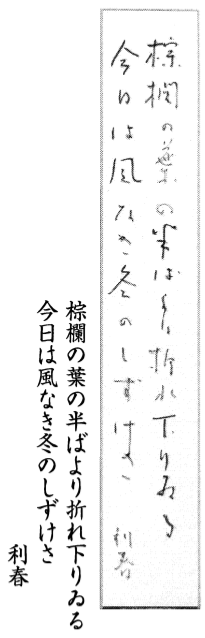 棕欄の葉の半ばより折れ下りゐる
今日は風なき冬のしずけさ
利春
棕欄の葉の半ばより折れ下りゐる
今日は風なき冬のしずけさ
利春